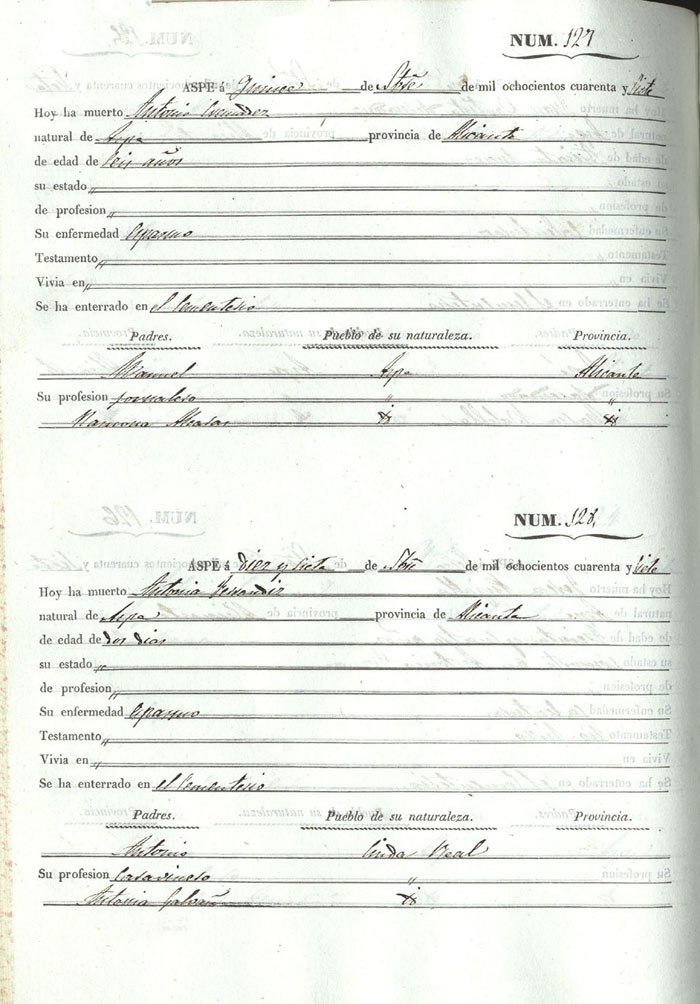 NUM. 127
ASPE á Quince de Stñe de mil ochocientos cuarenta y siete
Hoy ha muerto Antonio
natural de Aspe provincia de Alicante
de edad de seis años
su estado „
de profesion „
Su enfermedad espasmo
Testamento „
Vivia en „
Se ha enterrado en el Cementerio
Padres. Pueblo de su naturaleza. Provincia.
Manuel Aspe Alicante
Su profesion jornalero „ „
Ramona
NUM. 128.
ASPE á Diez y siete de Stñe de mil ochocientos cuarenta y siete
Hoy ha muerto Antonia Ferrandiz
natural de Aspe provincia de Alicante
de edad de dos dias
su estado „
de profesion „
Su enfermedad espasmo
Testamento „
Vivia en „
Se ha enterrado en el Cementerio
Padres. Pueblo de su naturaleza. Provincia.
Antonio Real
Su profesion „
Antonia Galvañ